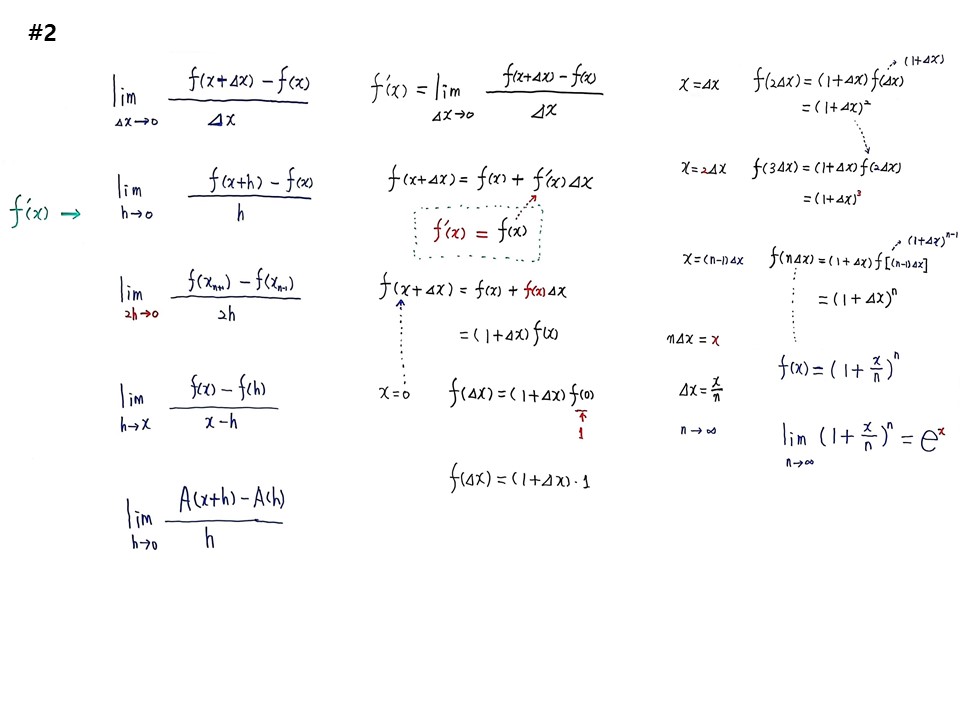 #2
f'(x) →
lim Δx→0 (f(x+Δx) − f(x)) / Δx
lim h→0 (f(x+h) − f(x)) / h
lim 2h→0 (f(xₙ₊₁) − f(xₙ₋₁)) / 2h
lim h→x (f(x) − f(h)) / (x−h)
lim h→0 (A(x+h) − A(h)) / h
f'(x) = lim Δx→0 (f(x+Δx) − f(x)) / Δx
f(x+Δx) = f(x) + f'(x)Δx
f'(x) = f(x)
f(x+Δx) = f(x) + f(x)Δx
= (1+Δx)f(x)
x=0 f(Δx) = (1+Δx)f(0)
↑
1
f(Δx) = (1+Δx)·1
(1+Δx)
x=Δx f(2Δx) = (1+Δx)f(Δx)
= (1+Δx)²
x=2Δx f(3Δx) = (1+Δx)f(2Δx)
= (1+Δx)³
(1+Δx)ⁿ⁻¹
x=(n−1)Δx f(nΔx) = (1+Δx)f[(n−1)Δx]
= (1+Δx)ⁿ
nΔx = x
f(x) = (1+x/n)ⁿ
Δx = x/n
n→∞ lim n→∞ (1+x/n)ⁿ = eˣ